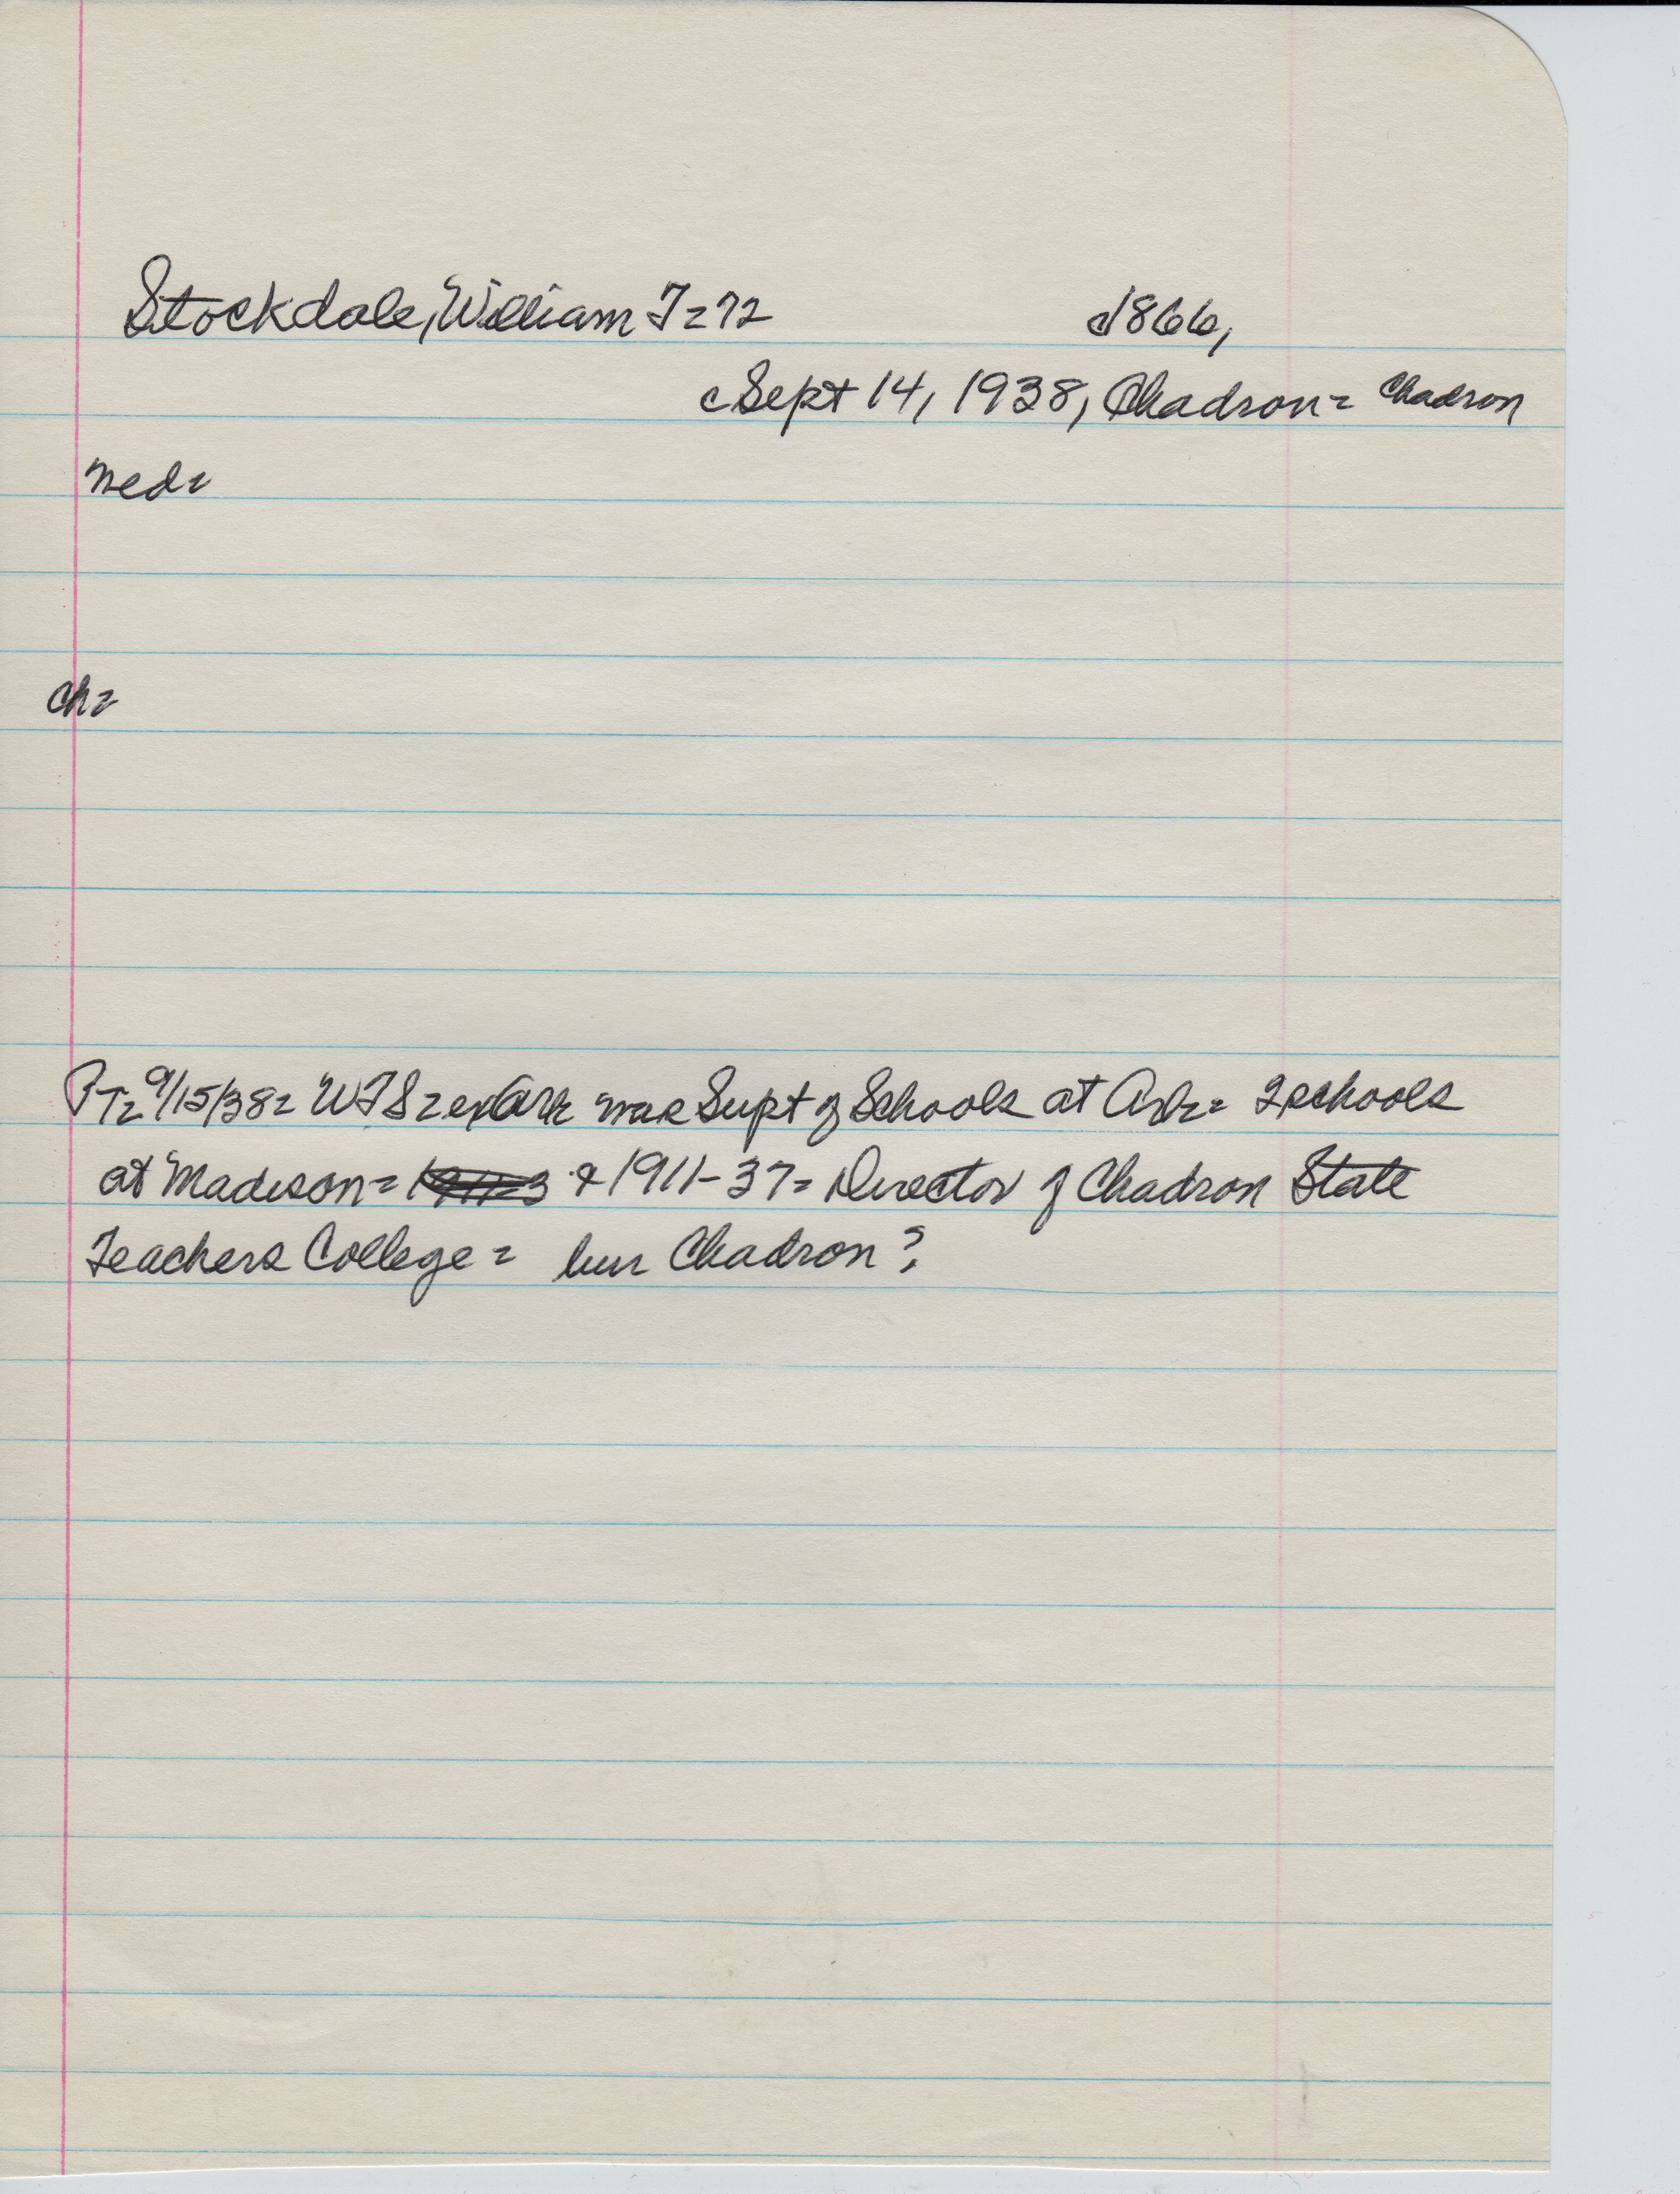 Stockdale, William T= 72 1866,
Sept 14, 1938, Chadron= Chadron
med=
ch=
PT= 9/15/38= WTS= ex Ark was Supt of Schools at Ash= & schools
at Madison= & 1911-37= Director of Chadron State
Teachers College= bur Chadron?